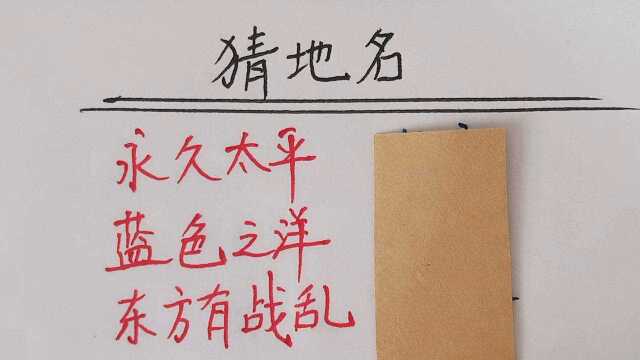 猜地名
永久太平
蓝色之洋
东方有战乱